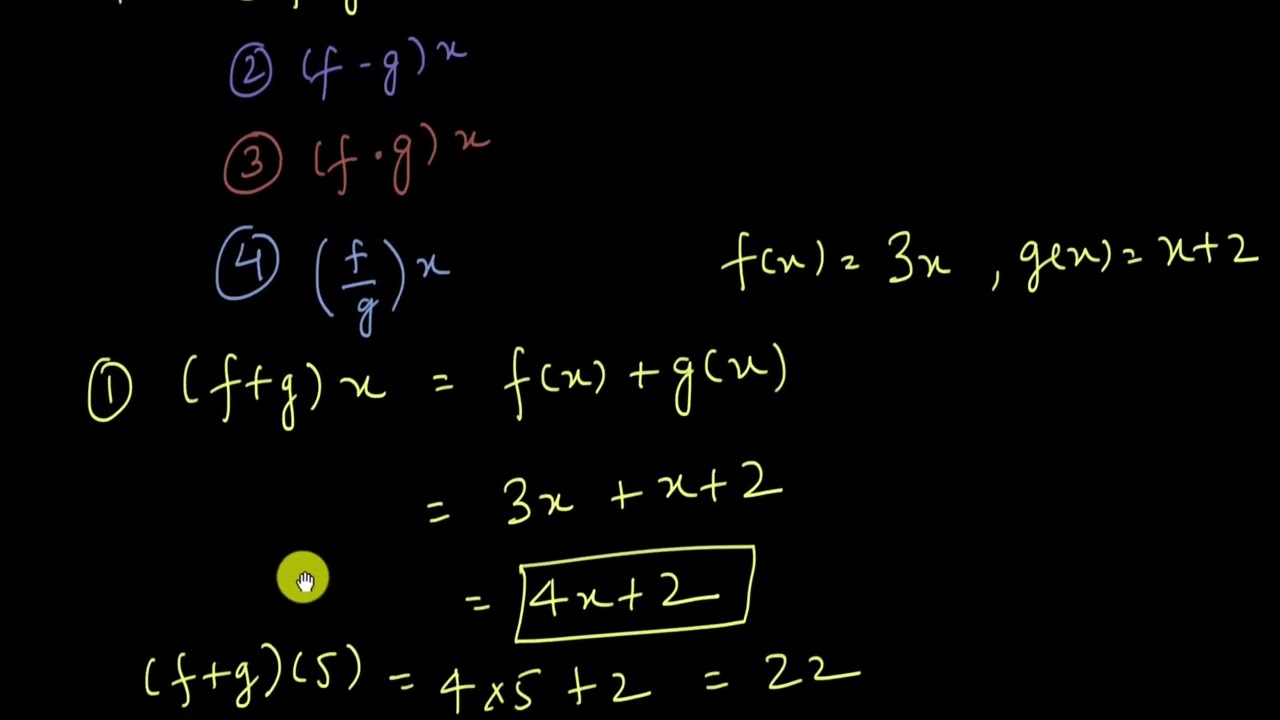 ② (f - g) x
③ (f · g) x
④ (f/g) x
f(x) = 3x , g(x) = x+2
① (f+g) x = f(x) + g(x)
= 3x + x+2
= 4x+2
(f+g)(5) = 4×5 +2 = 22